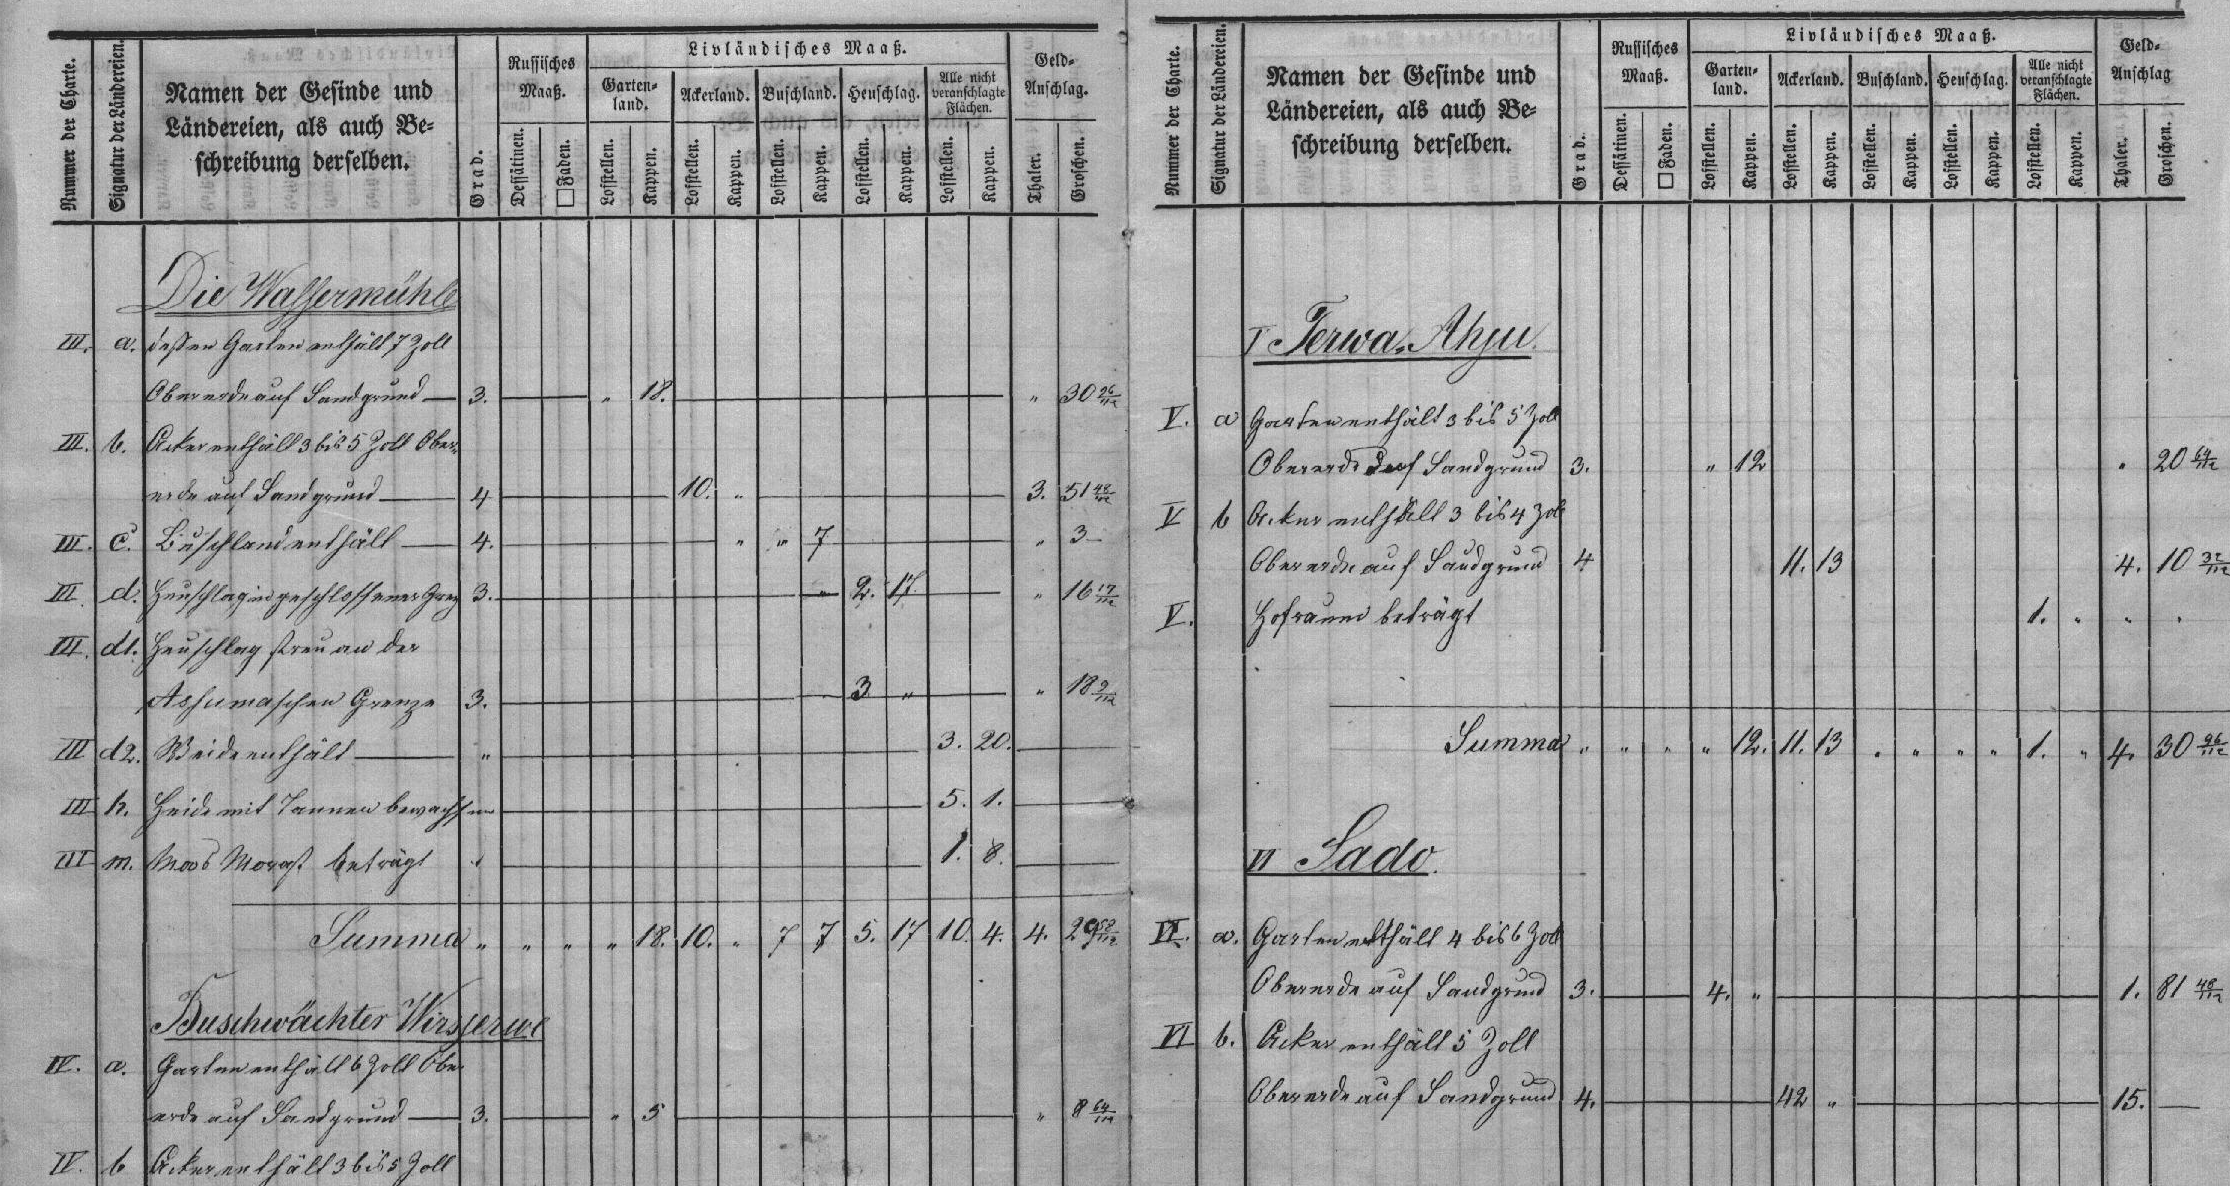 Nummer der Charte.
Signatur der Ländereien.
Namen der Gesinde und
Ländereien, als auch Be-
schreibung derselben.
Grad.
Russisches
Maaß.
Dessätinen.
□Faden.
Livländisches Maaß.
Garten-
land.
Ackerland.
Buschland.
Heuschlag.
Alle nicht
veranschlagte
Flächen.
Lofstellen.
Kappen.
Lofstellen.
Kappen.
Lofstellen.
Kappen.
Lofstellen.
Kappen.
Lofstellen.
Kappen.
Geld-
Anschlag.
Thaler.
Groschen.
Die Wassermühle
III. a. deßen Garten enthält 7 Zoll
Obererde auf Sandgrund — 3. — „ 18. — „ 30 26/112
III. b. Acker enthält 3 bis 5 Zoll Ober-
erde auf Sandgrund — 4 — 10. „ — 3. 51 48/112
III. c. Buschland enthält — 4. — „ „ 7 — „ 3 —
III. d. Heuschlag in geschlossener Grenz 3. — „ 2. 17. — „ 16 17/112
III. d1. Heuschlag streu an der
Assumaschen Grenze 3. — 3 „ — „ 18 9/112
III d2. Weide enthält — „ — 3. 20. —
III h. Heide mit Tannen bewachsen — 5. 1. —
III m. Moos Morast beträgt „ — 1. 8. —
Summa „ „ „ „ 18. 10. „ 7 7 5. 17 10. 4. 4. 29 58/112
Buschwächter
IV. a. Garten enthält 6 Zoll Ober
erde auf Sandgrund — 3. — „ 5 — „ 8 64/112
IV. b Acker enthält 3 bis 5 Zoll
Nummer der Charte.
Signatur der Ländereien.
Namen der Gesinde und
Ländereien, als auch Be-
schreibung derselben.
Grad.
Russisches
Maaß.
Dessätinen.
□Faden.
Livländisches Maaß.
Garten-
land.
Ackerland.
Buschland.
Heuschlag.
Alle nicht
veranschlagte
Flächen.
Lofstellen.
Kappen.
Lofstellen.
Kappen.
Lofstellen.
Kappen.
Lofstellen.
Kappen.
Lofstellen.
Kappen.
Geld-
Anschlag
Thaler.
Groschen.
Terwa-Ahju.
V. a Garten enthält 3 bis 5 Zoll
Obererde auf Sandgrund 3. „ 12 „ 20 64/112
V b Acker enthält 3 bis 4 Zoll
Obererde auf Sandgrund 4 11. 13 4. 10 32/112
V. Hofraum beträgt 1. „ „ „
Summa „ „ „ „ 12. 11. 13 „ „ „ „ 1. „ 4. 30 96/112
VI Sado.
VI. a. Garten enthält 4 bis 6 Zoll
Obererde auf Sandgrund 3. — 4. „ — 1. 81 48/112
VI b. Acker enthält 5 Zoll
Obererde auf Sandgrund 4. — 42 „ — 15. —